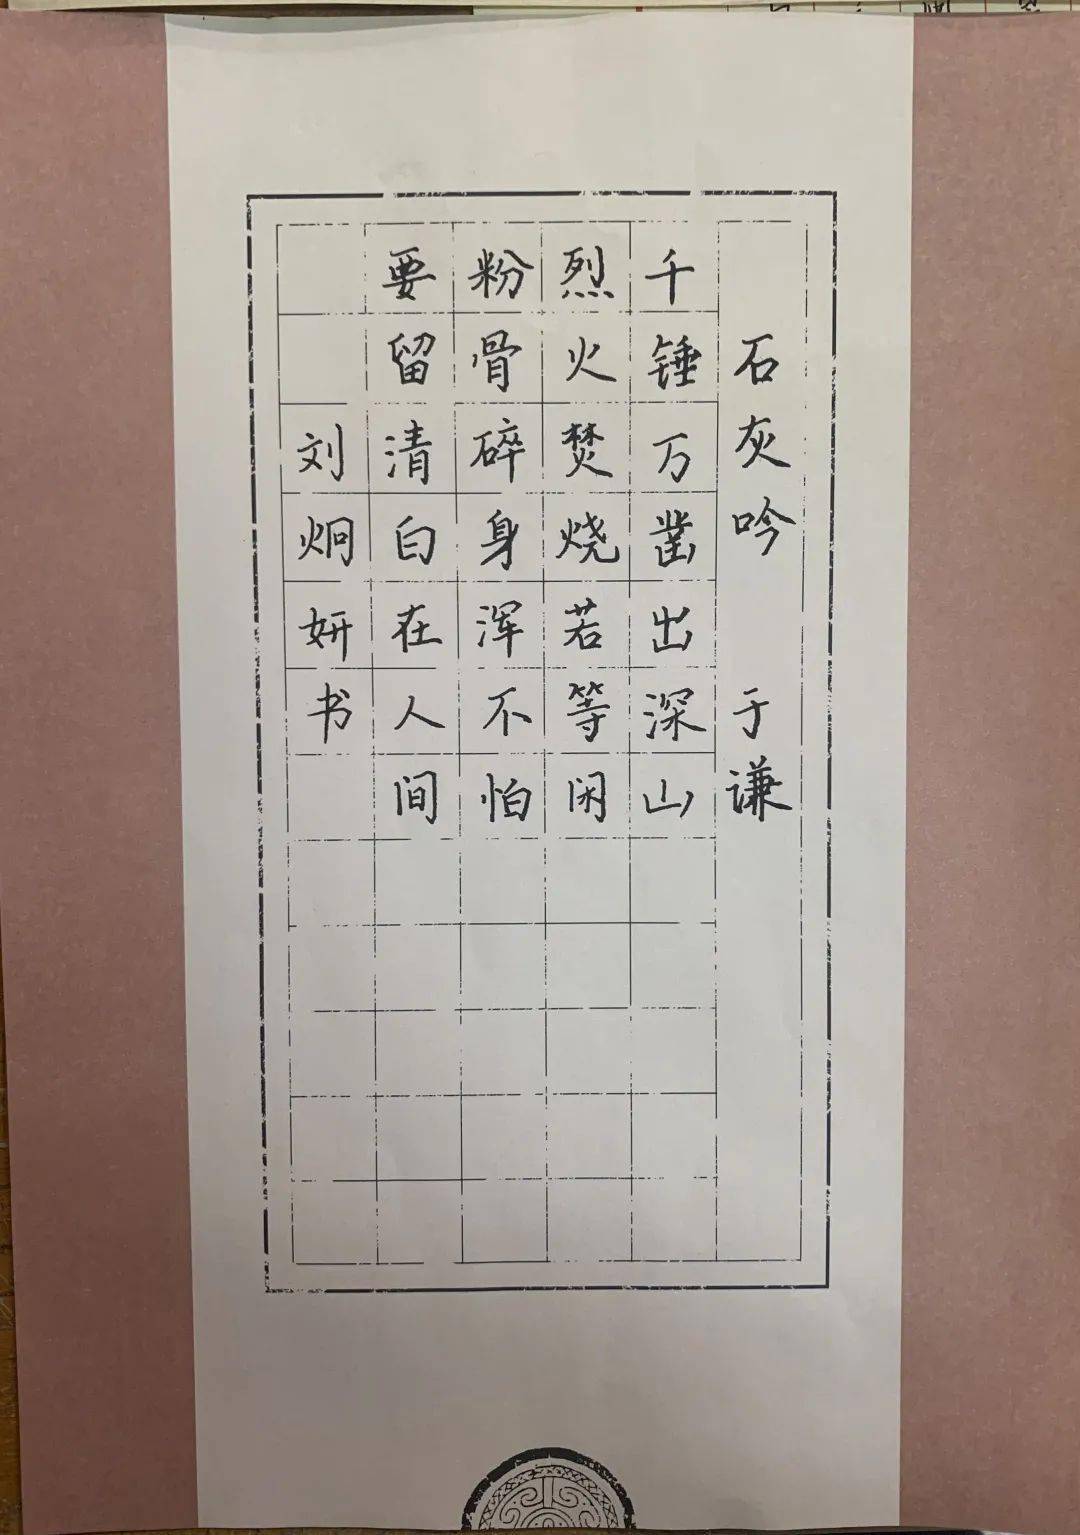 石灰吟 于谦
千锤万凿出深山
烈火焚烧若等闲
粉骨碎身浑不怕
要留清白在人间
刘炯妍书